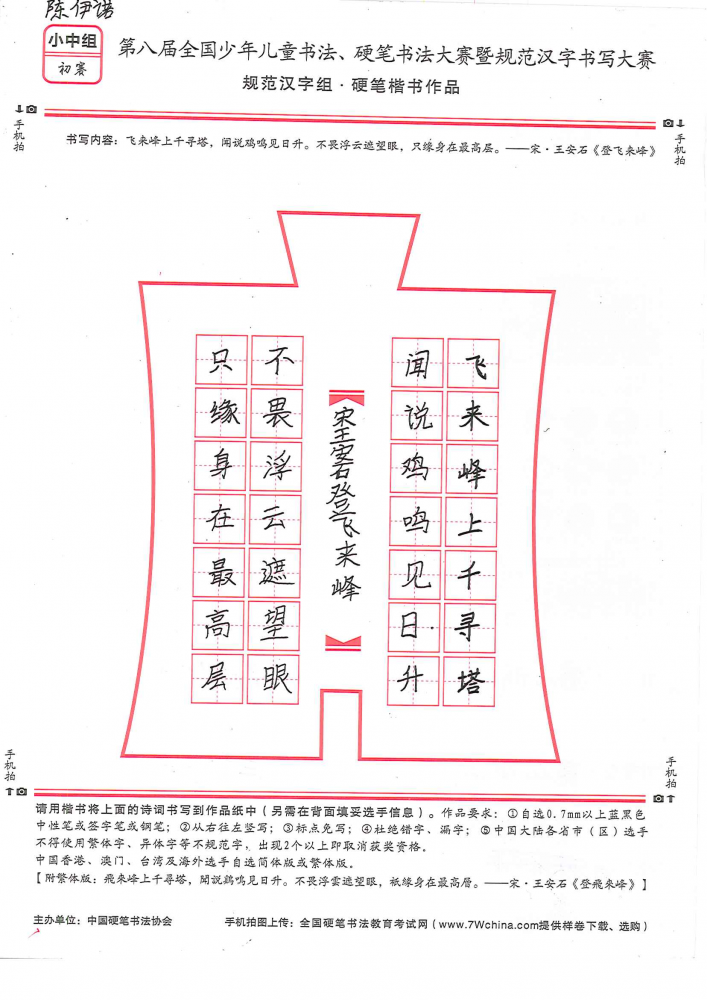 陈伊诺
小中组
初赛
第八届全国少年儿童书法、硬笔书法大赛暨规范汉字书写大赛
规范汉字组·硬笔楷书作品
手机拍
手机拍
书写内容：飞来峰上千寻塔，闻说鸡鸣见日升。不畏浮云遮望眼，只缘身在最高层。——宋·王安石《登飞来峰》
飞来峰上千寻塔
闻说鸡鸣见日升
宋王安石登飞来峰
不畏浮云遮望眼
只缘身在最高层
手机拍
手机拍
请用楷书将上面的诗词书写到作品纸中（另需在背面填妥选手信息）。作品要求：①自选0.7mm以上蓝黑色
中性笔或签字笔或钢笔；②从右往左竖写；③标点免写；④杜绝错字、漏字；⑤中国大陆各省市（区）选手
不得使用繁体字、异体字等不规范字，出现2个以上即取消获奖资格。
中国香港、澳门、台湾及海外选手自选简体版或繁体版。
【附繁体版：飛來峰上千尋塔，聞説鷄鳴見日升。不畏浮雲遮望眼，祇緣身在最高層。——宋·王安石《登飛來峰》】
主办单位：中国硬笔书法协会
手机拍图上传：全国硬笔书法教育考试网（www.7Wchina.com提供样卷下载、选购）